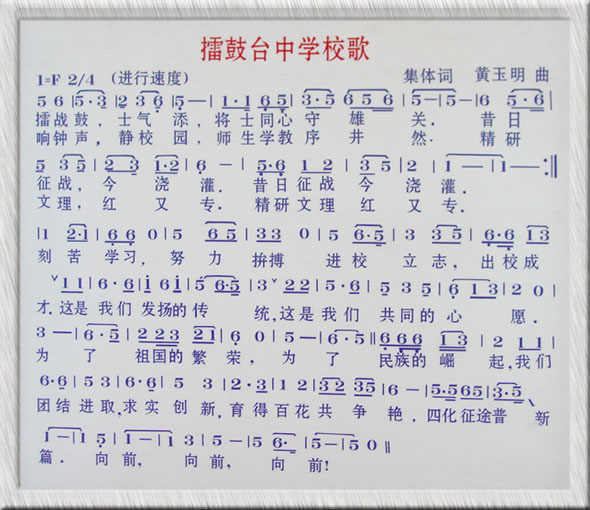 擂鼓台中学校歌
1=F 2/4 (进行速度) 集体词 黄玉明 曲
5 6 | 5·3 | 2 3 6 | 5 — | 1·1 6 5 | 3·5 6 5 6 | 5 — | 5 — | 6 5·6 |
擂战鼓, 士气 添, 将士同心 守 雄 关. 昔日
响钟声, 静校 园, 师生学教 序 井 然. 精研
5 3 5 | 2 3 1·2 | 6 — | 6·6 1 2 | 3 5 | 2 | 1 — | 1 — :||
征战, 今 浇 灌. 昔日征战 今 浇 灌.
文理, 红 又 专. 精研文理 红 又 专.
| 1 2·1 | 6 6 0 | 5 6 5 | 3 3 0 | 5 6·5 | 3 3 5 | 6·6 1 3
刻 苦 学习, 努 力 拚搏 进校 立志, 出校成
1 1 | 6·6 i 6 i | 5 6·5 | 3 2 2 | 5·6 | 5 3 5 | 6 1 3 | 2 0 |
才.这是 我们 发扬的传 统,这是 我们 共同的心 愿.
3 — | 6·5 | 2 2 3 2 1 | 6 0 | 5 — | 6·5 || 6 6 6 1 3 | 2 1 1 |
为 了 祖国的繁 荣, 为 了 民族的 崛 起,我们
6·6 5 3 | 6·6 | 5 3 | 2·3 | 1 2 | 3 2 3 5 | 6 — | 5·5 6 5 | 3·5
团结进取,求实创新,育得百花共 争 艳, 四化征途普 新
1 — | 1 5 | 1 — | 1 3 | 5 — | 5 6· | 5 — | 5 0 ||
篇. 向前, 向前, 向 前!